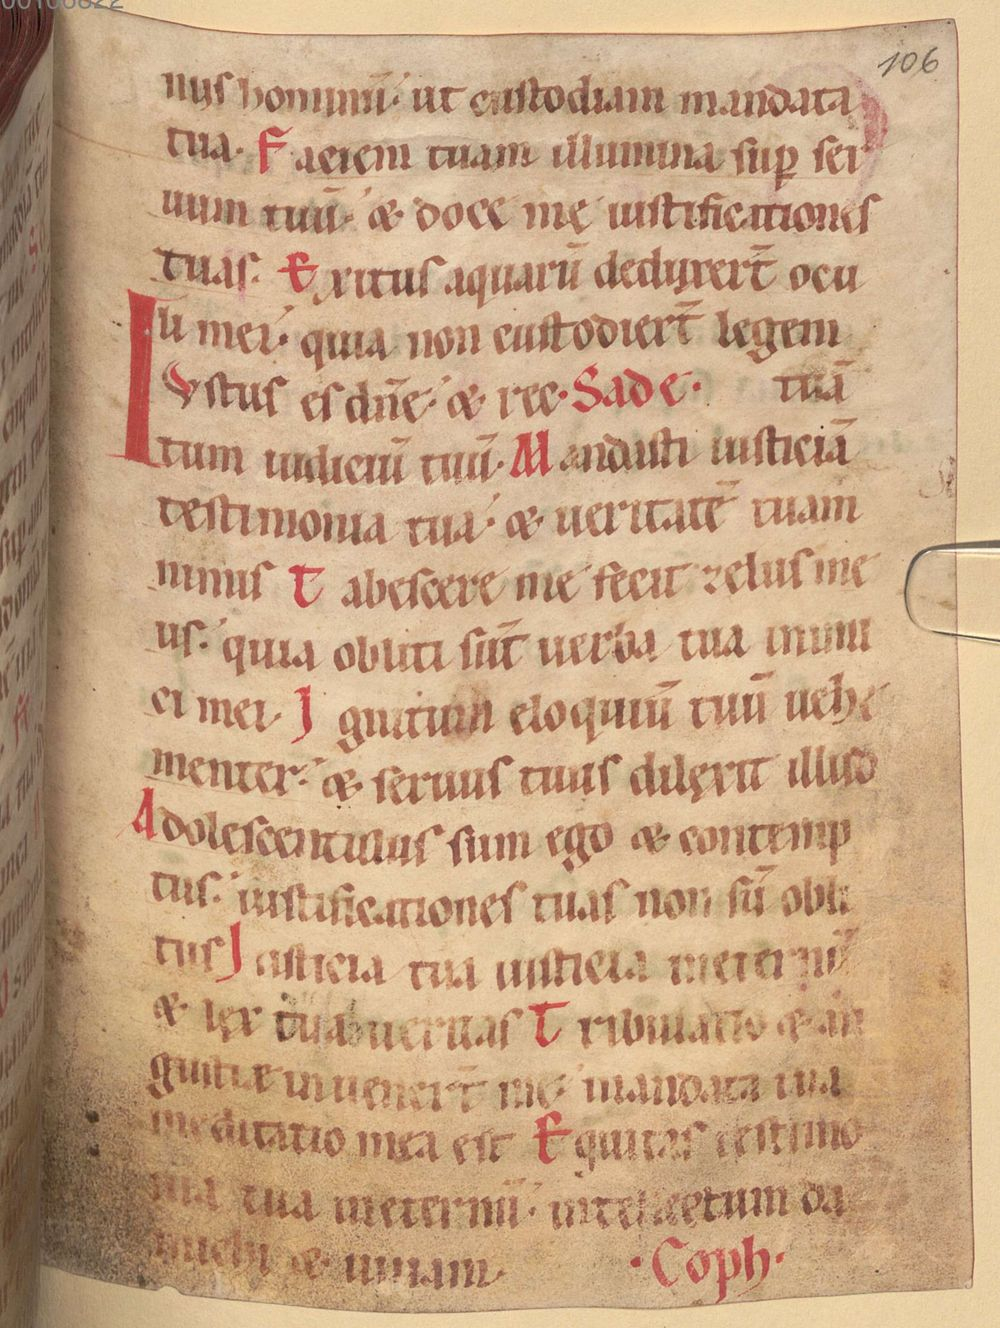 106
nijs hominū· ut custodiam mandata
tua· Faciem tuam illumina sup ser
uum tuū· & doce me iustificationes
tuas· Exitus aquarū deduxert̄ ocu
li mei· quia non custodiert̄ legem
Iustus es dn̄e· & rec· Sade· tuā
tum iudiciū tuū· Mandasti iusticiā
testimonia tua· & ueritatē tuam
nimis Tabescere me fecit zelus me
us· quia obliti sūt uerba tua inimi
ci mei· Ignitum eloquiū tuū uehe
menter· & seruus tuus dilexit illud
Adolescentulus sum ego & contemp
tus· iustificationes tuas non sū obli
tus Iusticia tua iusticia ineternū
& lex tua ueritas Tribulatio & an
gustiæ inuenert̄ me· mandata tua
meditatio mea est Equitas testimo
nia tua ineternū· intellectum da
michi & uiuam· ·Coph·